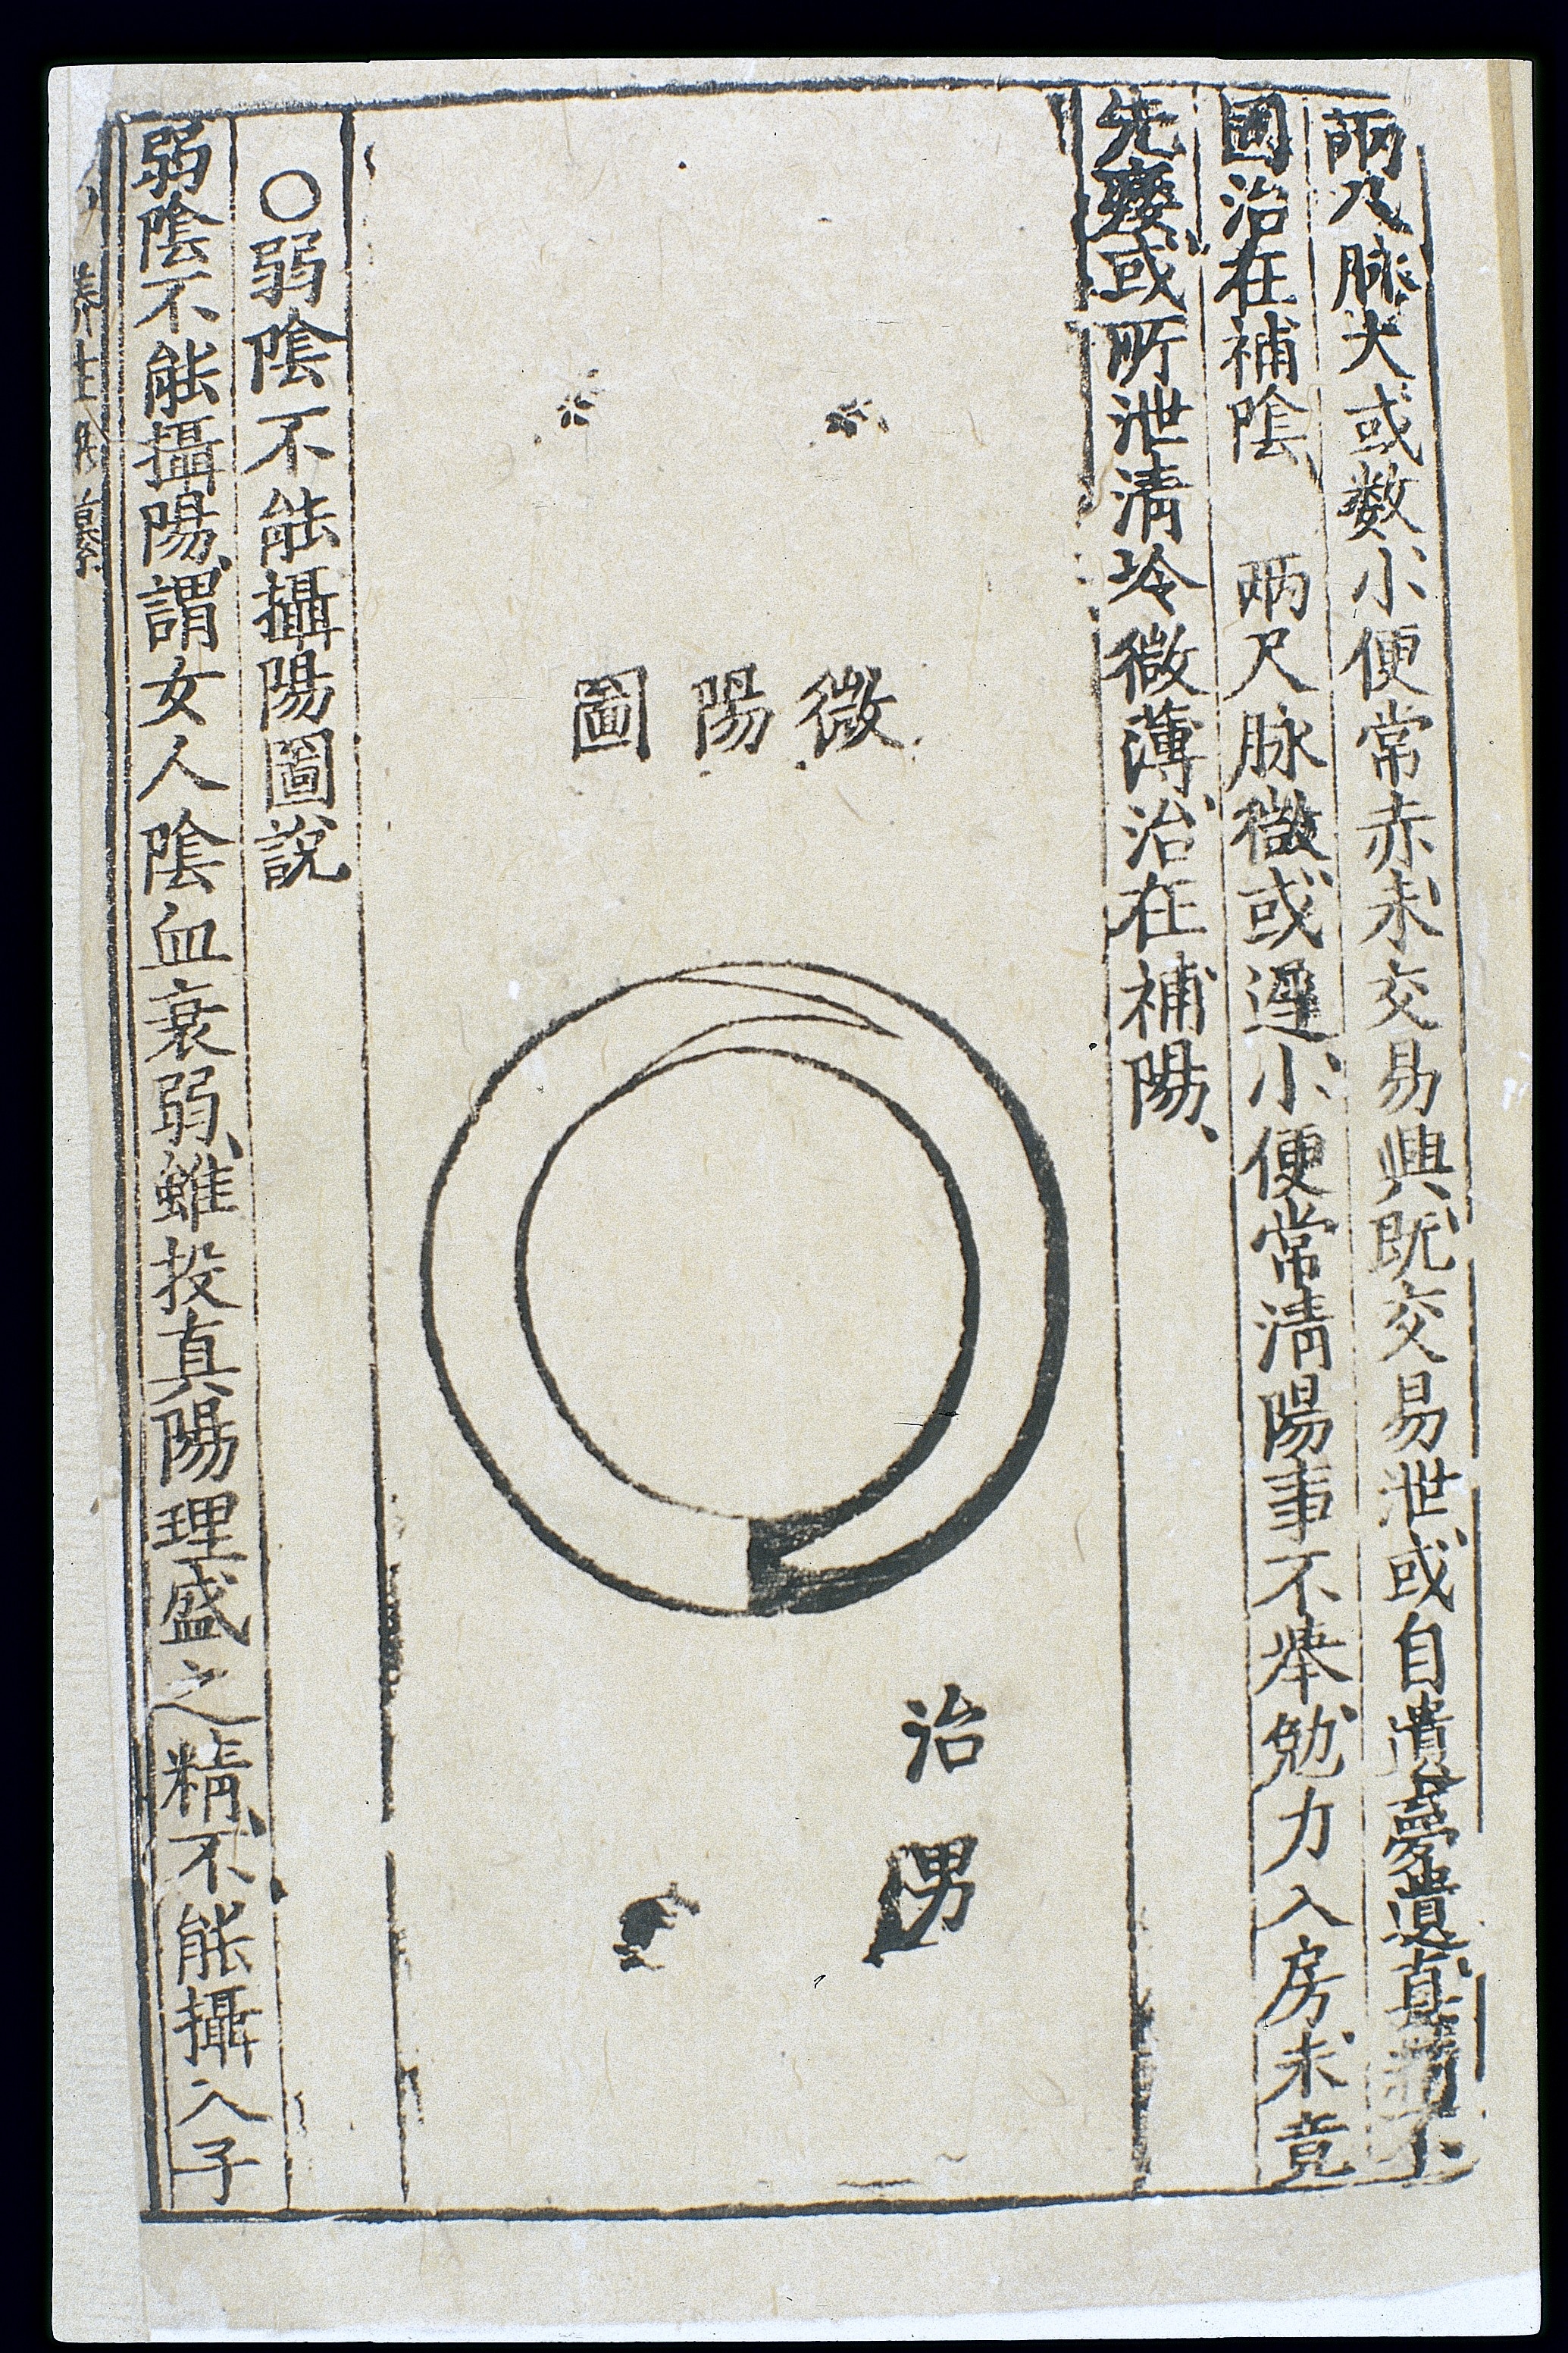 兩尺脉大或数小便常赤未交易興既交易泄或自遺夢遺真
固治在補陰 兩尺脉微或遲小便常清陽事不舉勉力入房未竟
先痿或所泄清冷微薄治在補陽
微陽圖
治男
〇弱陰不能攝陽圖說
弱陰不能攝陽謂女人陰血衰弱雖投真陽理盛之精不能攝入子